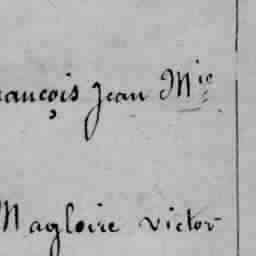 rançois Jean Mie
Magloire victor